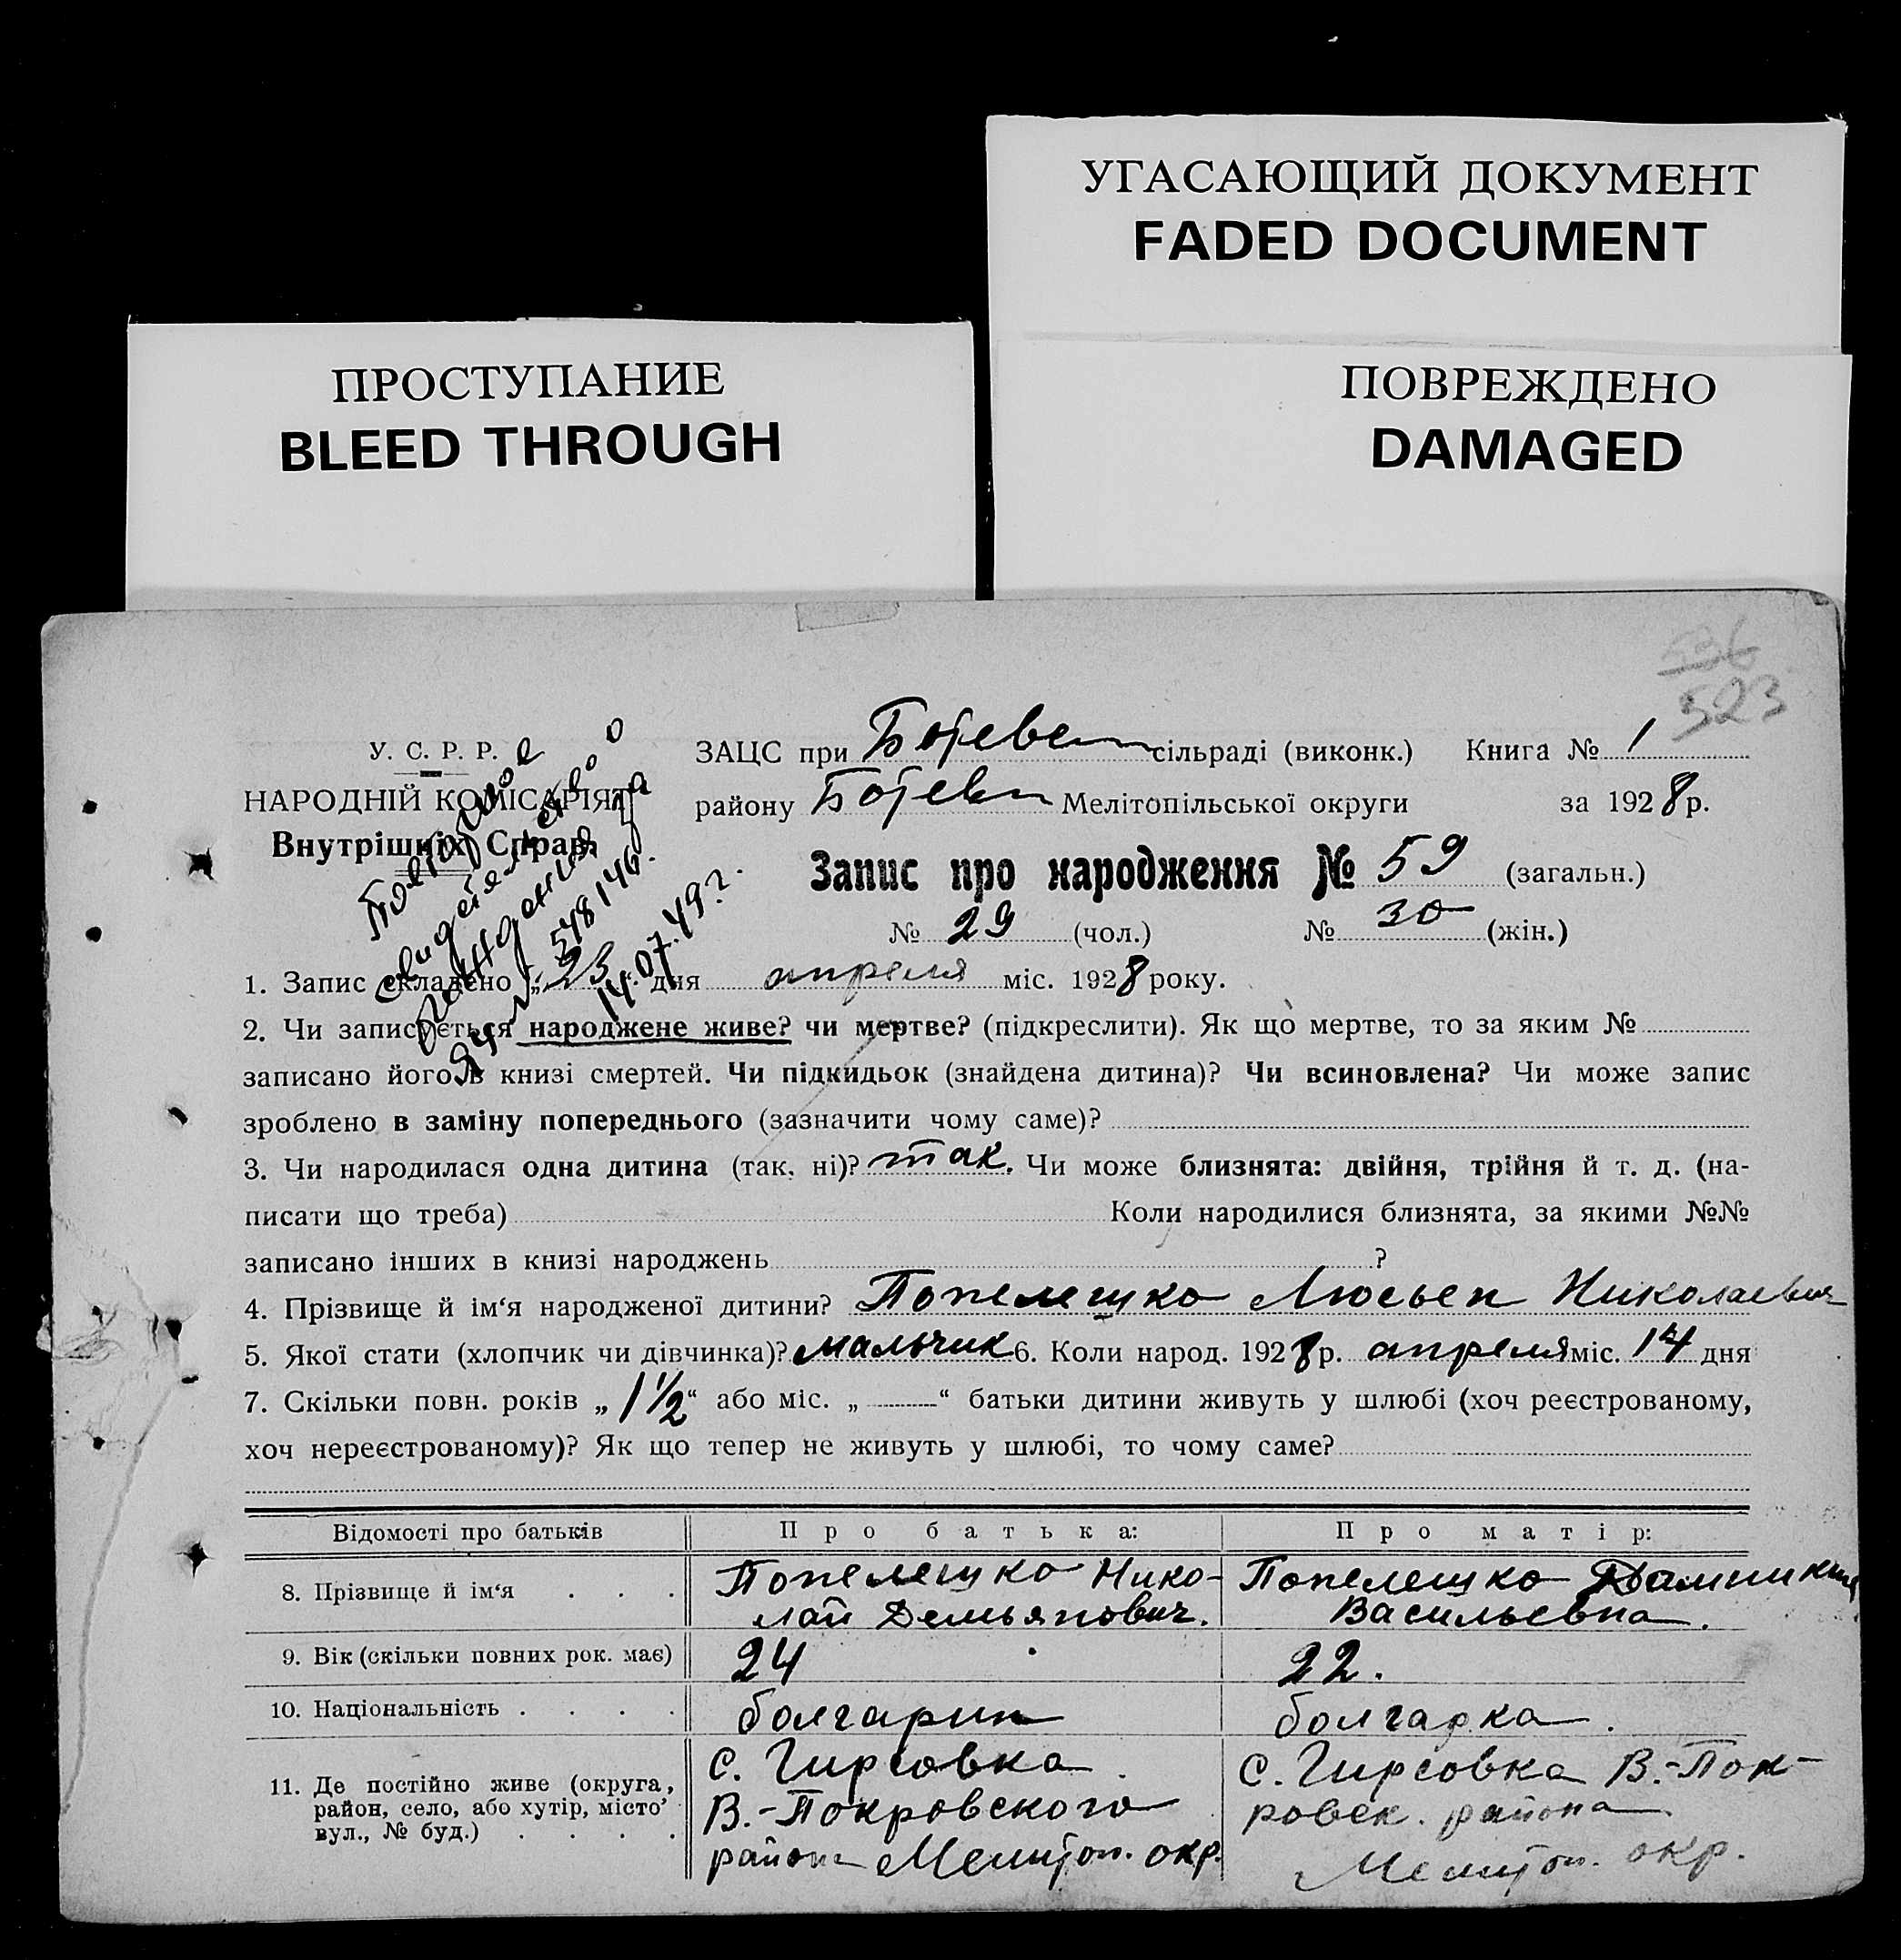 УГАСАЮЩИЙ ДОКУМЕНТ
FADED DOCUMENT
ПРОСТУПАНИЕ
BLEED THROUGH
ПОВРЕЖДЕНО
DAMAGED
536
523
У. С. Р. Р.
НАРОДНІЙ КОМІСАРІЯТ
Внутрішніх Справ
Повторное
свидетельство о
рождении
548146.
14.07.49г.
ЗАЦС при Ботевск сільраді (виконк.) Книга № 1
району Ботевск Мелітопільської округи за 1928 р.
Запис про народження № 59 (загальн.)
№ 29 (чол.) № 30 (жін.)
1. Запис складено „23“ дня апреля міс. 1928 року.
2. Чи записується народжене живе? чи мертве? (підкреслити). Як що мертве, то за яким №
записано його в книзі смертей. Чи підкидьок (знайдена дитина)? Чи всиновлена? Чи може запис
зроблено в заміну попереднього (зазначити чому саме)?
3. Чи народилася одна дитина (так, ні)? так. Чи може близнята: двійня, трійня й т. д. (на-
писати що треба) Коли народилися близнята, за якими №№
записано інших в книзі народжень ?
4. Прізвище й ім‘я народженої дитини? Попелешко Люсьен Николаевич
5. Якої стати (хлопчик чи дівчинка)? мальчик 6. Коли народ. 1928 р. апреля міс. 14 дня
7. Скільки повн. років „1 1/2“ або міс. „ “ батьки дитини живуть у шлюбі (хоч реєстрованому,
хоч нереєстрованому)? Як що тепер не живуть у шлюбі, то чому саме?
Відомості про батьків Про батька: Про матір:
8. Прізвище й ім‘я Попелешко Нико- Попелешко
лай Демьянович. Васильевна.
9. Вік (скільки повних рок. має) 24 22.
10. Національність болгарин болгарка.
11. Де постійно живе (округа, район, село, або хутір, місто, вул., № буд.)
с. Гирсовка с. Гирсовка В.-Пок-
В.-Покровского ровск. района
района Мелитоп. окр. Мелитоп. окр.